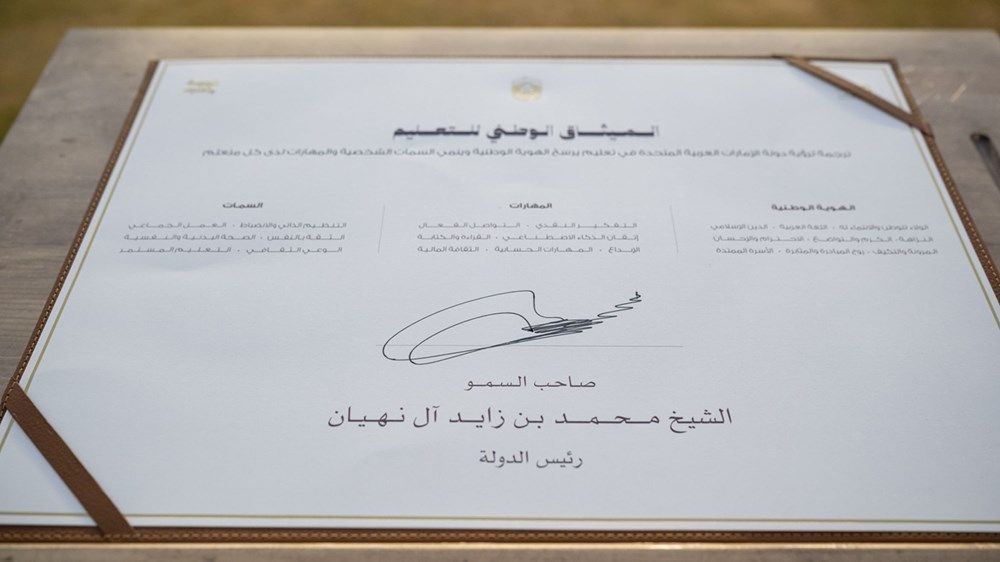 الميثاق الوطني للتعليم
ترجمة لرؤية دولة الإمارات العربية المتحدة في تعليم يرسخ الهوية الوطنية وينمي السمات الشخصية والمهارات لدى كل متعلم
الهوية الوطنية
الولاء للوطن والانتماء له · اللغة العربية · الدين الإسلامي
النزاهة · الكرم والتواضع · الاحترام والإحسان
المرونة والتكيف · روح المبادرة والمثابرة · الأسرة الممتدة
المهارات
التفكير النقدي · التواصل الفعال
إتقان الذكاء الاصطناعي · القراءة والكتابة
الإبداع · المهارات الحسابية · الثقافة المالية
السمات
التنظيم الذاتي والانضباط · العمل الجماعي
الثقة بالنفس · الصحة البدنية والنفسية
الوعي الثقافي · التعليم المستمر
صاحب السمو
الشيخ محمد بن زايد آل نهيان
رئيس الدولة